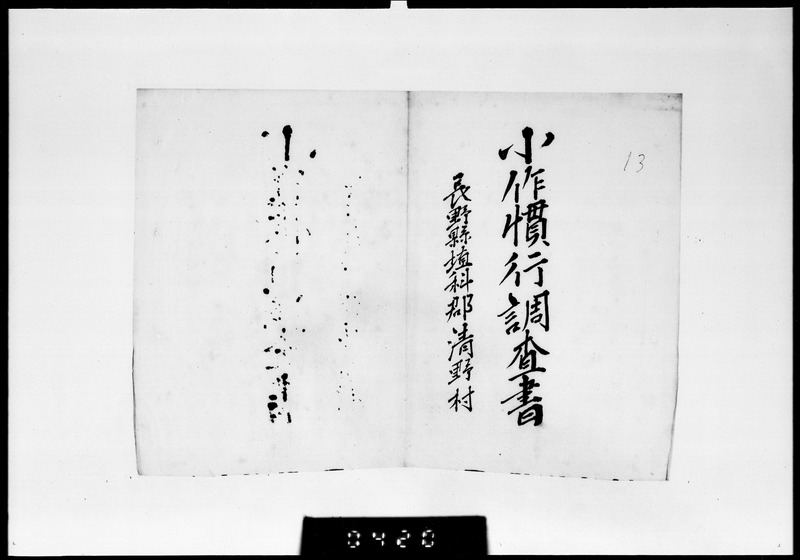 13
小作慣行調査書
長野縣埴科郡清野村
0420